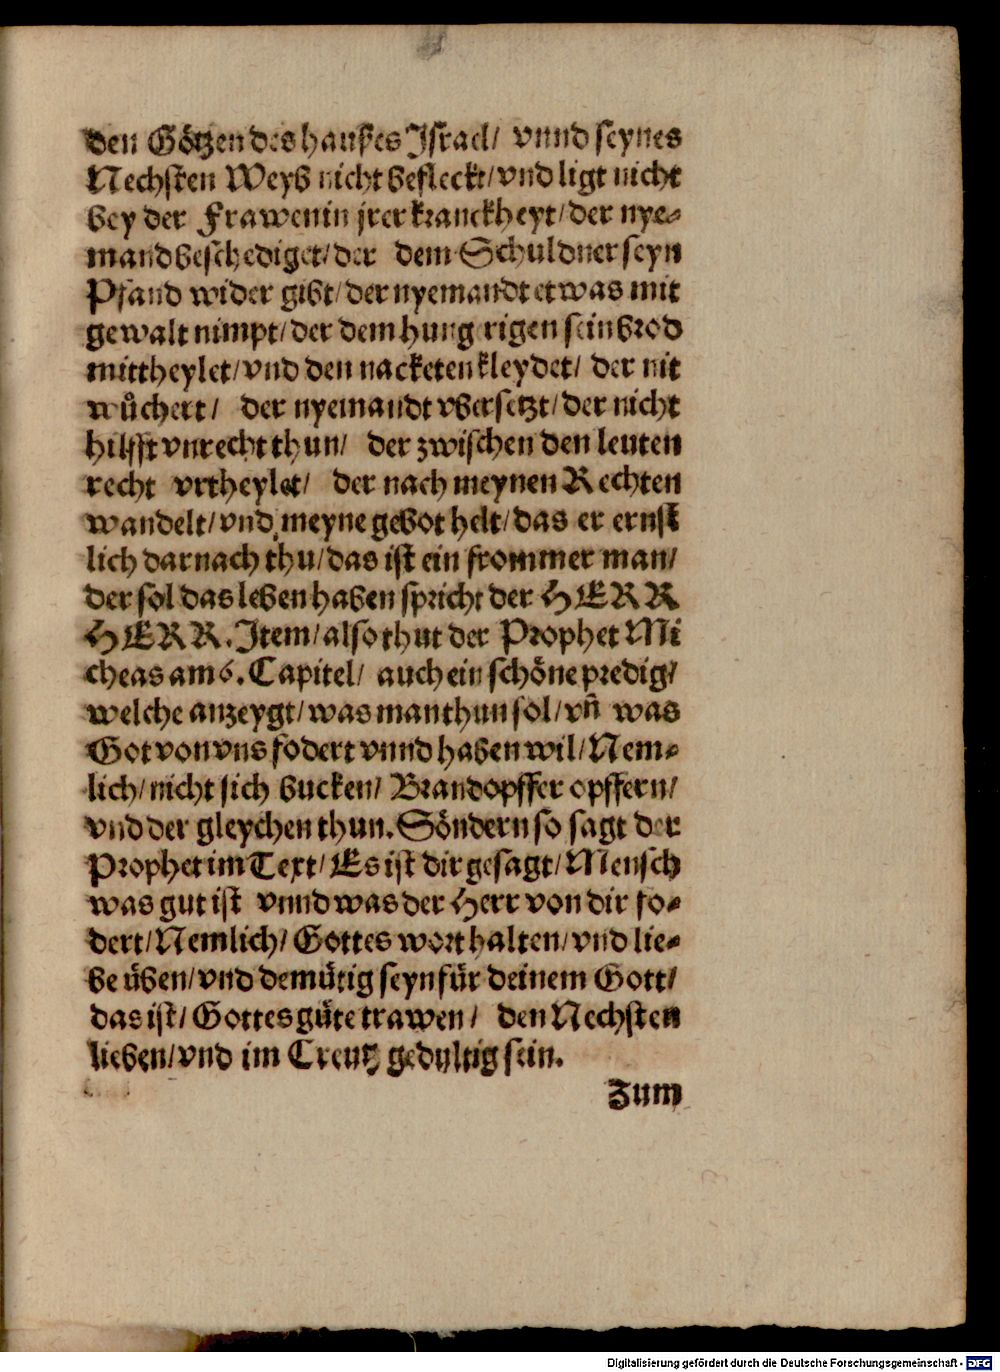 den Götzen des hauſses Jſrael/ vnnd ſeynes
Nechſten Weyb nicht befleckt/vnd ligt nicht
bey der Frawen in jrer kranckheyt/der nye-
mand beſchediget/der dem Schuldner ſeyn
Pfand wider gibt/der nyemandt etwas mit
gewalt nimpt/der dem hungrigen ſein brod
mittheylet/vnd den nacketen kleydet/ der nit
wůchert/ der nyemandt vberſetzt/der nicht
hilfft vnrecht thun/ der zwiſchen den leuten
recht vrtheylet/ der nach meynen Rechten
wandelt/vnd meyne gebot helt/das er ernſt
lich darnach thu/das iſt ein frommer man/
der ſol das leben haben ſpricht der HERR
HERR. Jtem/alſo thut der Prophet Mi
cheas am 6. Capitel/ auch ein ſchöne predig/
welche anzeygt/was man thun ſol/vñ was
Got von vns fodert vnnd haben wil/Nem-
lich/nicht ſich bucken/ Brandopffer opffern/
vnd der gleychen thun. Söndern ſo ſagt der
Prophet im Text/Es iſt dir geſagt/Menſch
was gut iſt vnnd was der Herr von dir fo-
dert/Nemlich/ Gottes wort halten/vnd lie-
be üben/vnd demütig ſeyn für deinem Gott/
das iſt/ Gottes güte trawen/ den Nechſten
lieben/vnd im Creutz gedultig ſein.
Zum
Digitalisierung gefördert durch die Deutsche Forschungsgemeinschaft - DFG